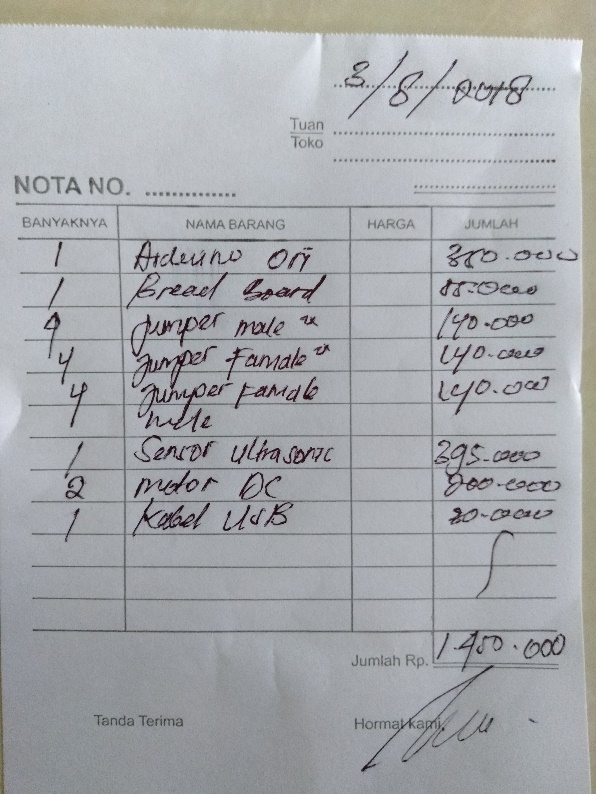 3/8/2018
Tuan
Toko
NOTA NO. ..............
BANYAKNYA NAMA BARANG HARGA JUMLAH
1 Arduino Ori 350.000
1 Bread Board 55.000
4 Jumper male 140.000
4 Jumper Famale 140.000
4 Jumper Famale 140.000
male
1 Sensor Ultrasonic 395.000
2 motor DC 200.000
1 Kabel USB 30.000
Jumlah Rp. 1.450.000
Tanda Terima Hormat kami,